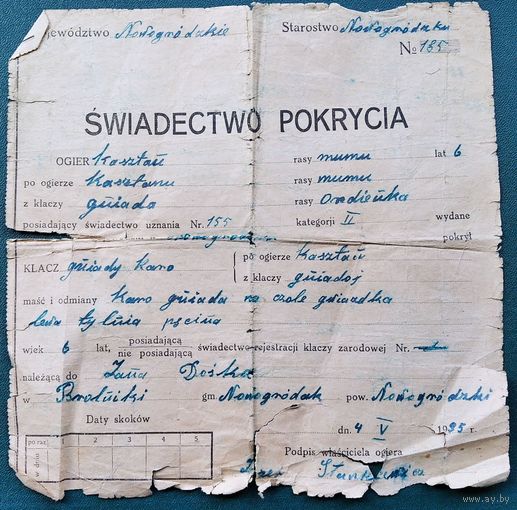 jewództwo Nowogródzkie Starostwo Nowogródzku
No 135
ŚWIADECTWO POKRYCIA
OGIER Kasztan rasy mumu lat 6
po ogierze Kasztanu rasy mumu
z klaczy gniada rasy
posiadający świadectwo uznania Nr. 155 kategorji II wydane
pokrył
KLACZ gniady Karo po ogierze Kasztan
z klaczy gniadoj
maść i odmiany Karo gniada na czole gwiadka
lewa tylnia pęcina
wiek 6 lat, posiadająca
nie posiadającą świadectwo rejestracji klaczy zarodowej Nr.
należącą do Jana
w gm Nowogródek pow. Nowogródzki
Daty skoków dn. 4 V 1935 r.
po raz 1 2 3 4 5
w dniu
Podpis właściciela ogiera
www.ay.by